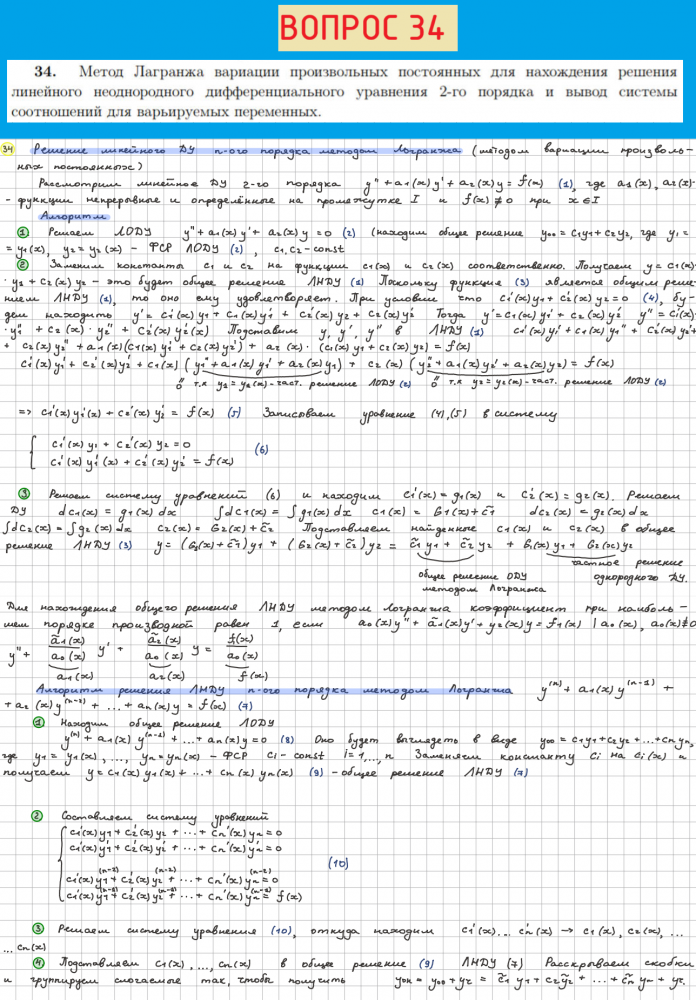 ВОПРОС 34
34. Метод Лагранжа вариации произвольных постоянных для нахождения решения
линейного неоднородного дифференциального уравнения 2-го порядка и вывод системы
соотношений для варьируемых переменных.
34 Решение линейного ДУ n-ого порядка методом Логранжа (методом вариации произволь-
ных постоянных)
Рассмотрим линейное ДУ 2-го порядка y'' + a1(x)y' + a2(x)y = f(x) (1), где a1(x), a2(x)-
- функции непрерывные и определённые на промежутке I и f(x) ≢ 0 при x∈I
Алгоритм
1 Решаем ЛОДУ y'' + a1(x)y' + a2(x)y = 0 (2) (находим общее решение yоо = c1y1 + c2y2, где y1 =
= y1(x), y2 = y2(x) - ФСР ЛОДУ (2), c1, c2 - const
2 Заменим константы c1 и c2 на функции c1(x) и c2(x) соответственно. Получаем y = c1(x)·
· y1 + c2(x)y2 - это будет общее решение ЛНДУ (1) Поскольку функция (3) является общим реше-
нием ЛНДУ (1), то оно ему удовлетворяет. При условии что c1'(x)y1 + c2'(x)y2 = 0 (4), бу-
дем находить y' = c1'(x)y1 + c1(x)y1' + c2'(x)y2 + c2(x)y2' Тогда y' = c1(x)y1' + c2(x)y2' y'' = c1(x)·
· y1'' + c2(x)·y2'' + c2'(x)y2'(x) Подставим y, y', y'' в ЛНДУ (1) c1'(x)y1' + c1(x)y1'' + c2'(x)y2' +
+ c2(x)y2'' + a1(x)(c1(x)y1' + c2(x)y2') + a2(x)·(c1(x)y1 + c2(x)y2) = f(x)
c1'(x)y1' + c2'(x)y2' + c1(x)(y1'' + a1(x)y1' + a2(x)y1) + c2(x)(y2'' + a1(x)y2' + a2(x)y2) = f(x)
0 т.к y1 = y1(x) - част. решение ЛОДУ (2) 0 т.к y2 = y2(x) - част. решение ЛОДУ (2)
=> c1'(x)y1'(x) + c2'(x)y2' = f(x) (5) Записываем уравнение (4), (5) в систему
c1'(x)y1 + c2'(x)y2 = 0
c1'(x)y1'(x) + c2'(x)y2' = f(x) (6)
3 Решаем систему уравнений (6) и находим c1'(x) = g1(x) и c2'(x) = g2(x). Решаем
ДУ dc1(x) = g1(x)dx ∫dc1(x) = ∫g1(x)dx c1(x) = G1(x) + c̃1 dc2(x) = g2(x)dx
∫dc2(x) = ∫g2(x)dx c2(x) = G2(x) + c̃2 Подставляем найденные c1(x) и c2(x) в общее
решение ЛНДУ (3) y = (G1(x) + c̃1)y1 + (G2(x) + c̃2)y2 = c̃1y1 + c̃2y2 + G1(x)y1 + G2(x)y2
частное решение
общее решение ОДУ однородного ДУ.
методом Логранжа
Для нахождения общего решения ЛНДУ методом Логранжа коэффициент при наиболь-
шем порядке производной равен 1, если a0(x)y'' + ã1(x)y' + y2(x)y = f1(x) | a0(x), a0(x)≢0
y'' + ã1(x)/a0(x) y' + ã2(x)/a0(x) y = f(x)/a0(x)
a1(x) a2(x) f(x)
Алгоритм решения ЛНДУ n-ого порядка методом Логранжа y⁽ⁿ⁾ + a1(x)y⁽ⁿ⁻¹⁾ +
+ a2(x)y⁽ⁿ⁻²⁾ + ... + an(x)y = f(x) (7)
1 Находим общее решение ЛОДУ
y⁽ⁿ⁾ + a1(x)y⁽ⁿ⁻¹⁾ + ... + an(x)y = 0 (8) Оно будет выглядеть в виде yоо = c1y1 + c2y2 + ... + cnyn,
где y1 = y1(x), ..., yn = yn(x) - ФСР ci - const i = 1, ..., n Заменяем константу ci на ci(x) и
получаем y = c1(x)y1(x) + ... + cn(x)yn(x) (9) - общее решение ЛНДУ (7)
2 Составляем систему уравнений
c1'(x)y1 + c2'(x)y2 + ... + cn'(x)yn = 0
c1'(x)y1' + c2'(x)y2' + ... + cn'(x)yn' = 0
(10)
c1'(x)y1⁽ⁿ⁻²⁾ + c2'(x)y2⁽ⁿ⁻²⁾ + ... + cn'(x)yn⁽ⁿ⁻²⁾ = 0
c1'(x)y1⁽ⁿ⁻¹⁾ + c2'(x)y2⁽ⁿ⁻¹⁾ + ... + cn'(x)yn⁽ⁿ⁻¹⁾ = f(x)
3 Решаем систему уравнения (10), откуда находим c1'(x)...cn'(x) → c1(x), c2(x), ...
... cn(x)
4 Подставляем c1(x), ..., cn(x) в общее решение (9) ЛНДУ (7) Расскрываем скобки
и группируем слогаемые так, чтобы получить yон = yоо + yч = c̃1y1 + c2ỹ2 + ... + c̃nyn + yч.